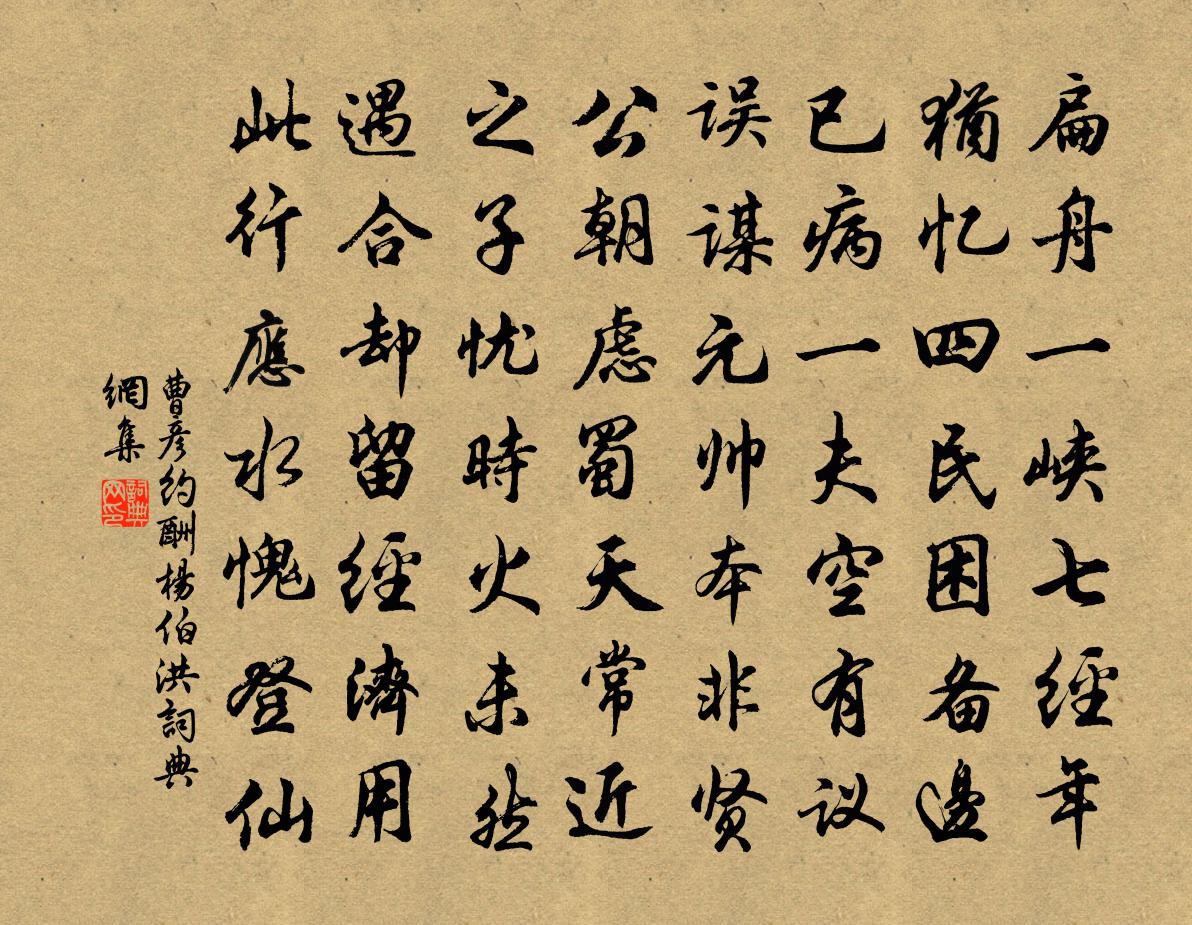 扁舟一峡七經年
猶忆四民困备邊
已病一夫空有议
误谋元帅本非贤
公朝虑蜀天常近
之子忧時火未然
遇合却留經濟用
此行應水愧登仙
曹彦约酬楊伯洪詞典
網集
詞典
网印